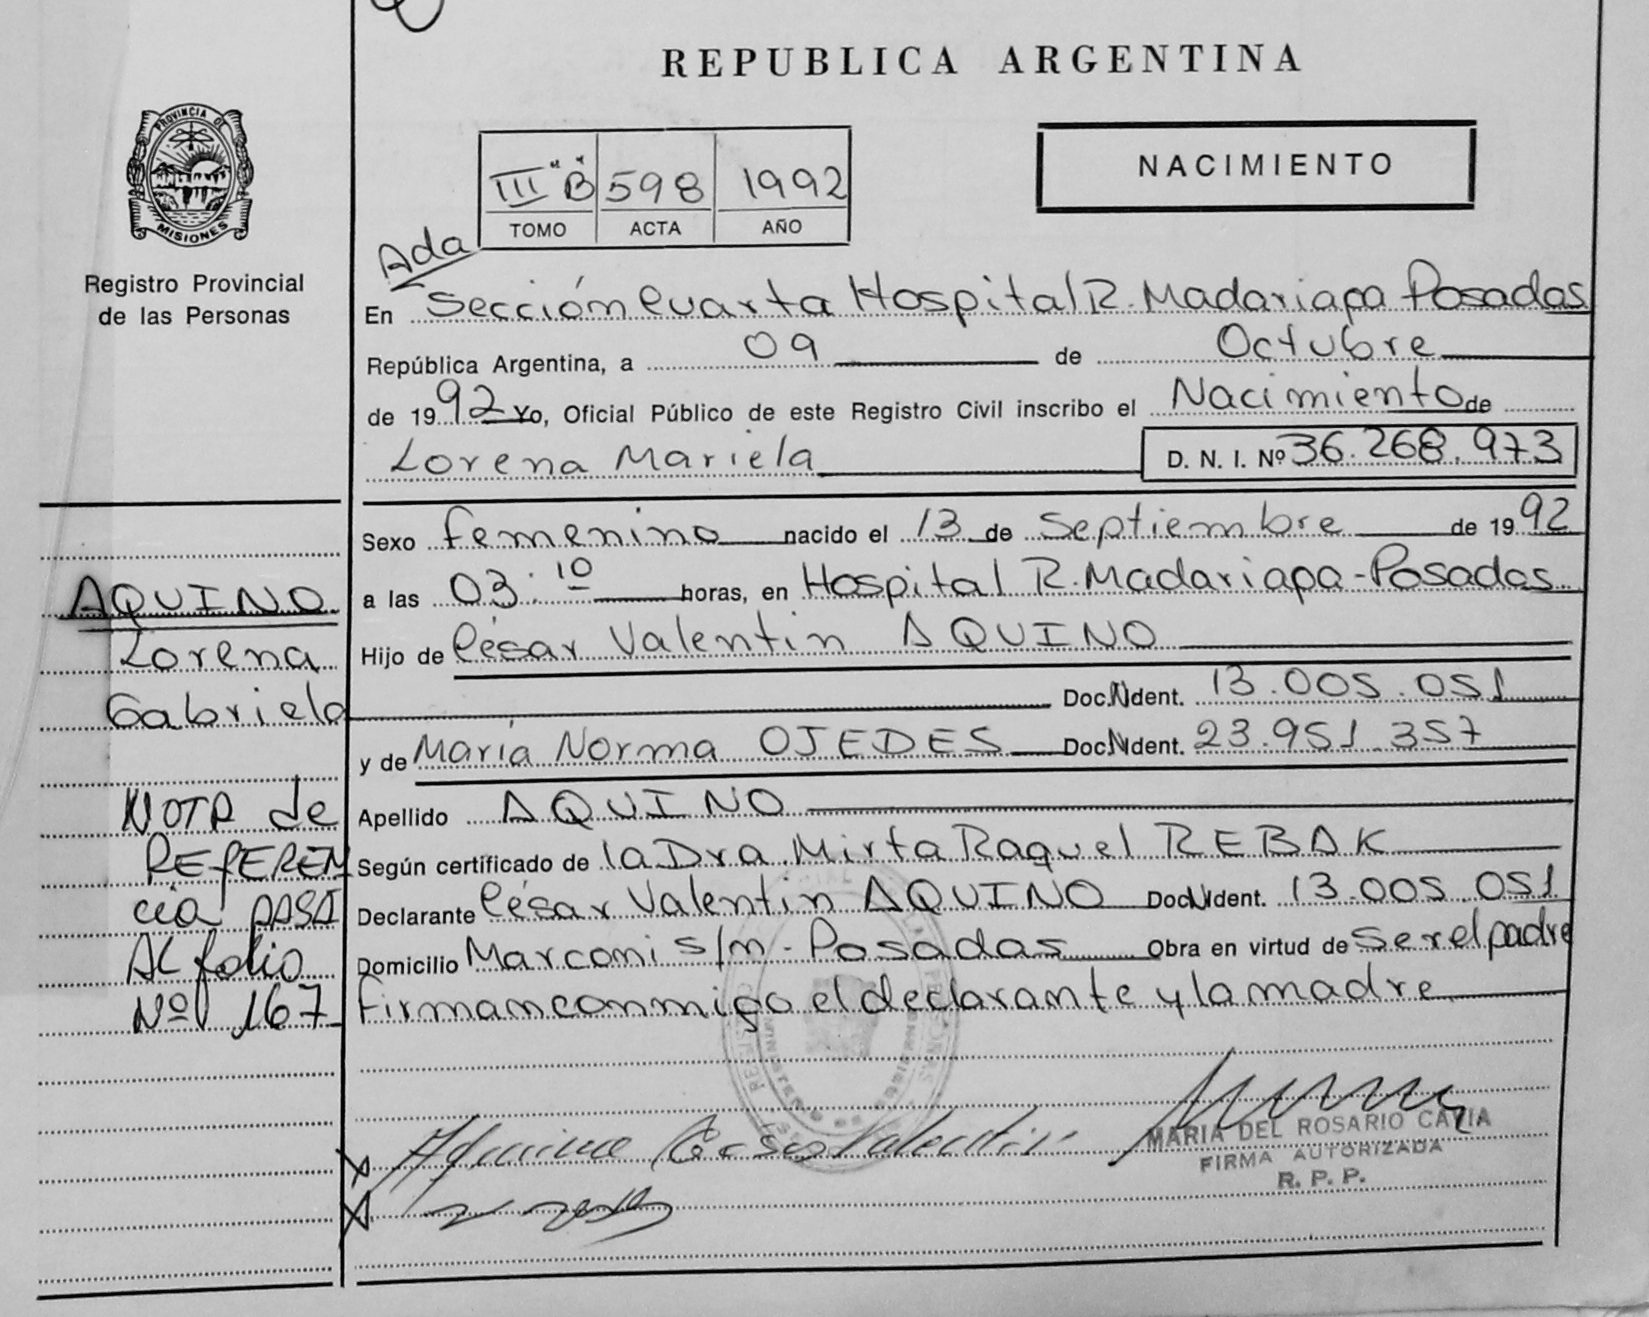 REPUBLICA ARGENTINA
PROVINCIA DE
MISIONES
Registro Provincial
de las Personas
III "B" 598 1992
TOMO ACTA AÑO
NACIMIENTO
Ada
En Sección Cuarta Hospital R. Madariaga Posadas
República Argentina, a 09 de Octubre
de 1992 Yo, Oficial Público de este Registro Civil inscribo el Nacimiento de
Lorena Mariela D. N. I. Nº 36.268.973
Sexo femenino nacido el 13 de Septiembre de 1992
a las 03:10 horas, en Hospital R. Madariaga - Posadas
Hijo de César Valentin AQUINO
Doc. Ident. 13.005.051
y de María Norma OJEDES Doc. Ident. 23.951.357
Apellido AQUINO
Según certificado de la Dra Mirta Raquel REBAK
Declarante César Valentin AQUINO Doc. Ident. 13.005.051
Domicilio Marconi s/n - Posadas Obra en virtud de ser el padre
firman conmigo el declarante y la madre
AQUINO
Lorena
Gabriela
NOTA de
REFEREN
cia PASA
AL folio
Nº 167
Aquino Cesar Valentin
MARIA DEL ROSARIO CAVIA
FIRMA AUTORIZADA
R. P. P.